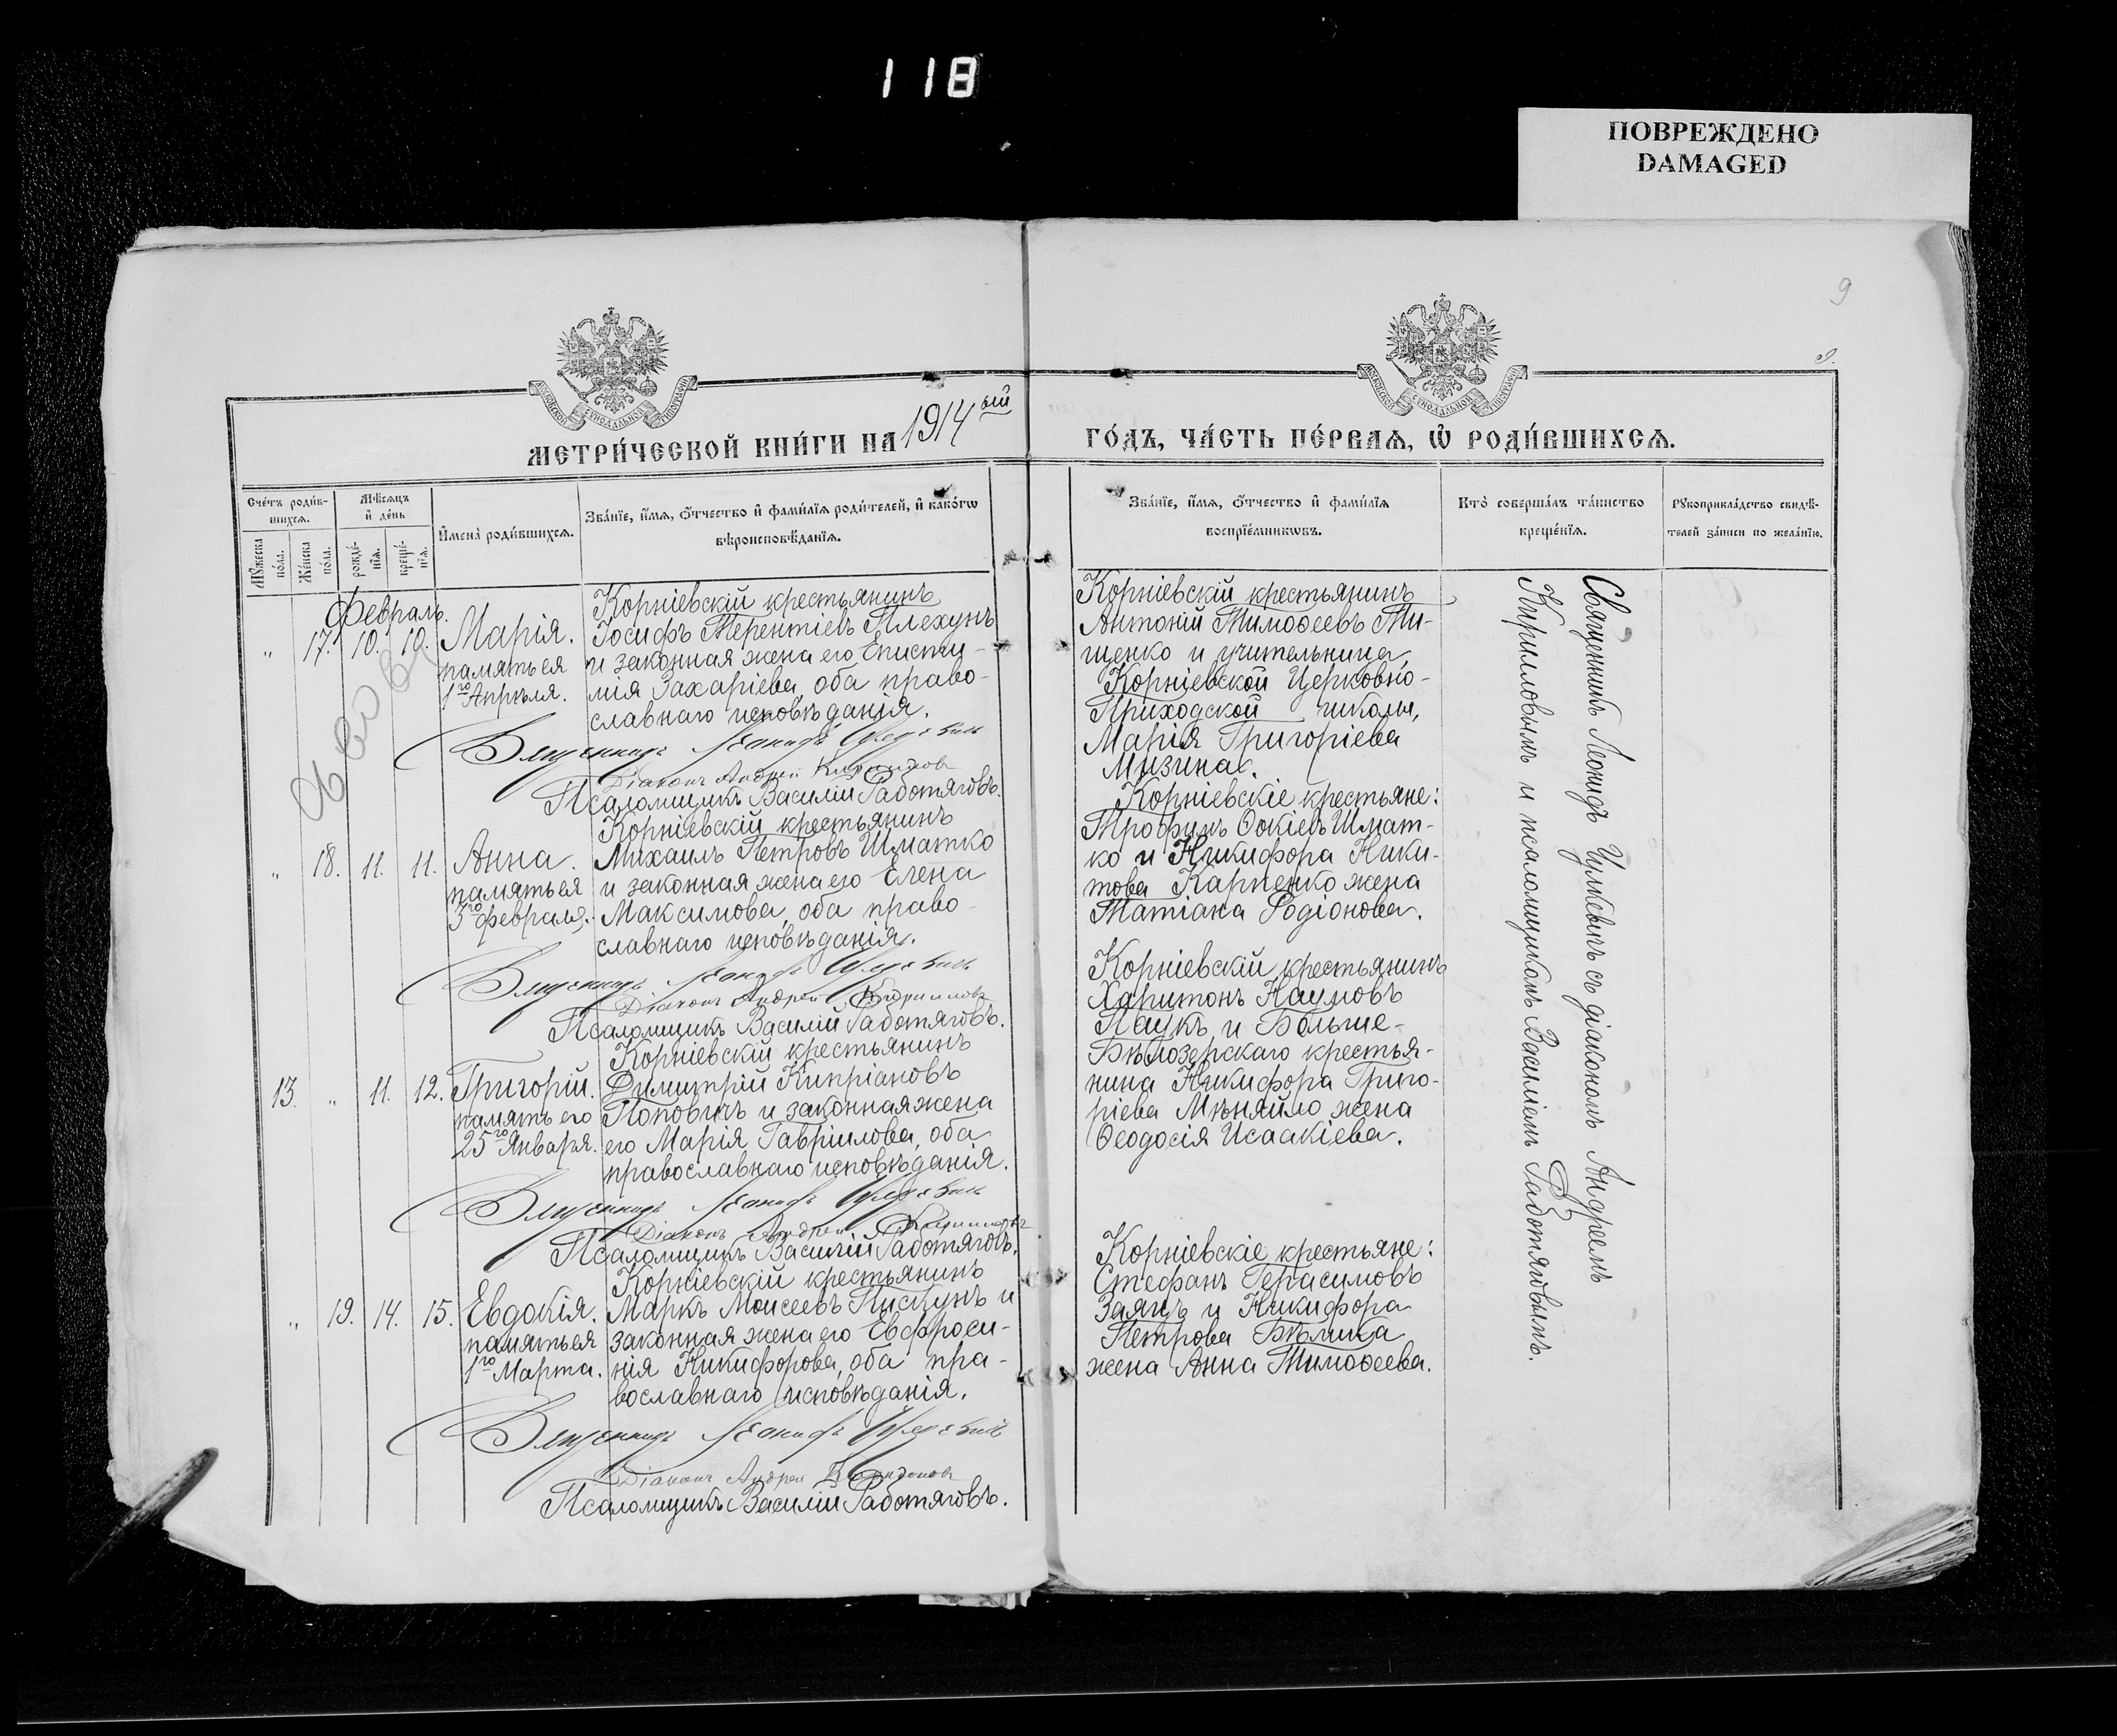 118
ПОВРЕЖДЕНО
DAMAGED
9
9.
МЕТРИ́ЧЕСКОЙ КНИ́ГИ НА 1914ый ГО́ДЪ, ЧА́СТЬ ПЕ́РВАѦ, Ѡ РОДИ́ВШИХСѦ.
Сче́тъ роди́в-
шихсѧ.
Мꙋ́жеска по́ла.
Же́нска по́ла.
Мѣ́сѧцъ
и҆ де́нь
рожде́-
нїѧ.
креще́-
нїѧ.
И҆мена̀ роди́вшихсѧ.
Зва́нїе, и҆́мѧ, ѻ҆́тчество и҆ фами́лїѧ роди́телей, и҆ како́гѡ
вѣроисповѣ́данїѧ.
Зва́нїе, и҆́мѧ, ѻ҆́тчество и҆ фами́лїѧ
воспрїе́мникѡвъ.
Кто̀ соверша́лъ та́инство
креще́нїѧ.
Рꙋкоприкла́дство свидѣ́-
телей за́писи по жела́нїю.
Февраль.
„ 17. 10. 10.
Марія.
память ея
1го Апрѣля.
Корніевскій крестьянинъ
Іосифъ Терентіевъ Плехунъ
и законная жена его Еписти-
мія Захаріева, оба право-
славнаго исповѣданія.
Священникъ Леонидъ
Діаконъ Андрей Кирилловъ
Псаломщикъ Василій Работяговъ.
Корніевскій крестьянинъ
Антоній Тимоѳеевъ Ти-
щенко и учительница
Корніевской Церковно-
Приходской школы,
Марія Григоріева
Мизина.
„ 18. 11. 11.
Анна.
память ея
3го февраля.
Корніевскій крестьянинъ
Михаилъ Петровъ Шматко
и законная жена его Елена
Максимова, оба право-
славнаго исповѣданія.
Священникъ Леонидъ
Діаконъ Андрей Кирилловъ
Псаломщикъ Василій Работяговъ.
Корніевскіе крестьяне:
Трофимъ Ѳокіевъ Шмат-
ко и Никифора Ники-
това Карпенко жена
Татіана Родіонова.
13. „ 11. 12.
Григорій.
память его
25го Января.
Корніевскій крестьянинъ
Димитрій Кипріановъ
Поповичъ и законная жена
его Марія Гавріилова, оба
православнаго исповѣданія.
Священникъ Леонидъ
Діаконъ Андрей Кирилловъ
Псаломщикъ Василій Работяговъ.
Корніевскій крестьянинъ
Харитонъ Наумовъ
Паукъ и Больше-
Бѣлозерскаго крестья-
нина Никифора Григо-
ріева Мѣняйло жена
Ѳеодосія Исаакіева.
„ 19. 14. 15.
Евдокія.
память ея
1го Марта.
Корніевскій крестьянинъ
Маркъ Моисеевъ Пискунъ и
законная жена его Евфроси-
нія Никифорова, оба пра-
вославнаго исповѣданія.
Священникъ Леонидъ
Діаконъ Андрей Кирилловъ
Псаломщикъ Василій Работяговъ.
Корніевскіе крестьяне:
Стефанъ Герасимовъ
Заяцъ и Никифора
Петрова Бѣлика
жена Анна Тимоѳеева.
Священникъ Леонидъ съ діакономъ Андреемъ
Кирилловымъ и псаломщикомъ Василіемъ Работяговымъ.